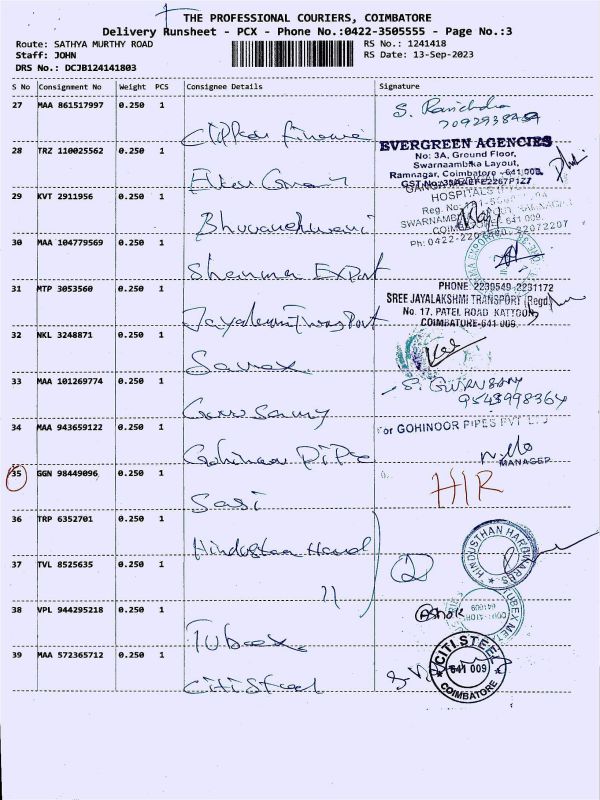 THE PROFESSIONAL COURIERS, COIMBATORE
Delivery Runsheet - PCX - Phone No.:0422-3505555 - Page No.:3
Route: SATHYA MURTHY ROAD
RS No.: 1241418
Staff: JOHN
RS Date: 13-Sep-2023
DRS No.: DCJB124141803
S No Consignment No Weight PCS Consignee Details Signature
27 MAA 861517997 0.250 1
S.
28 TRZ 110025562 0.250 1
EVERGREEN AGENCIES
No: 3A, Ground Floor,
Swarnaambika Layout,
Ramnagar, Coimbatore - 641 009.
29 KVT 2911956 0.250 1 Bhuvaneshwari
HOSPITALS
Reg. No:
641 009.
Ph: 0422-
30 MAA 104779569 0.250 1 Sharma Export
31 MTP 3053560 0.250 1 Jayalaxmi Transport
PHONE 2239549 2231172
SREE JAYALAKSHMI TRANSPORT (Regd)
No. 17, PATEL ROAD KATTOOR
COIMBATURE-641 009
32 NKL 3248871 0.250 1
33 MAA 101269774 0.250 1 Guru Samy
S. GURUSAMY
9543998364
34 MAA 943659122 0.250 1 Gohinoor Pipe
For GOHINOOR PIPES PVT LTD
MANAGER
35 GGN 98449096 0.250 1 Sasi
H/R
36 TRP 6352701 0.250 1 Hindustan Hard
HINDUSTHAN HARDWARES
37 TVL 8525635 0.250 1 11
2
38 VPL 944295218 0.250 1 Tubex
ASHOK
TUBEX METAL
641009
39 MAA 572365712 0.250 1 Citi Steel
CITI STEEL
641 009
COIMBATORE